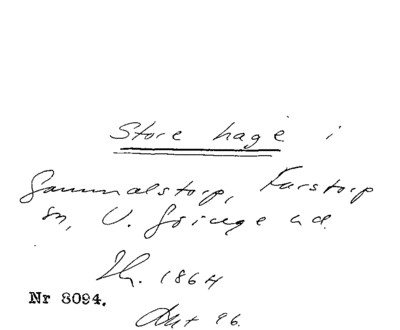 Store hage i
Gammalstorp, Farstorp
sn, V. Göinge hd.
Th. 1864
Nr 8094.
Akt 96.